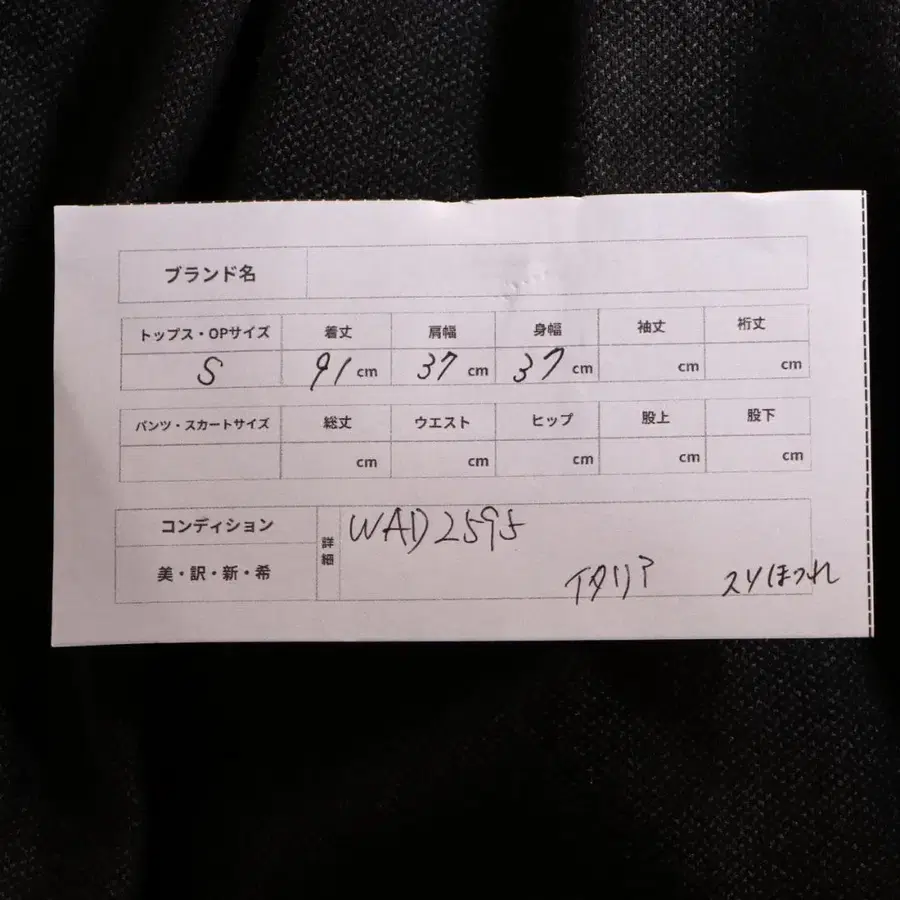 ブランド名
トップス・OPサイズ 着丈 肩幅 身幅 袖丈 裄丈
S 91 cm 37 cm 37 cm cm cm
パンツ・スカートサイズ 総丈 ウエスト ヒップ 股上 股下
cm cm cm cm cm
コンディション 詳細 WAD2595
美・訳・新・希 イタリア スソほつれ